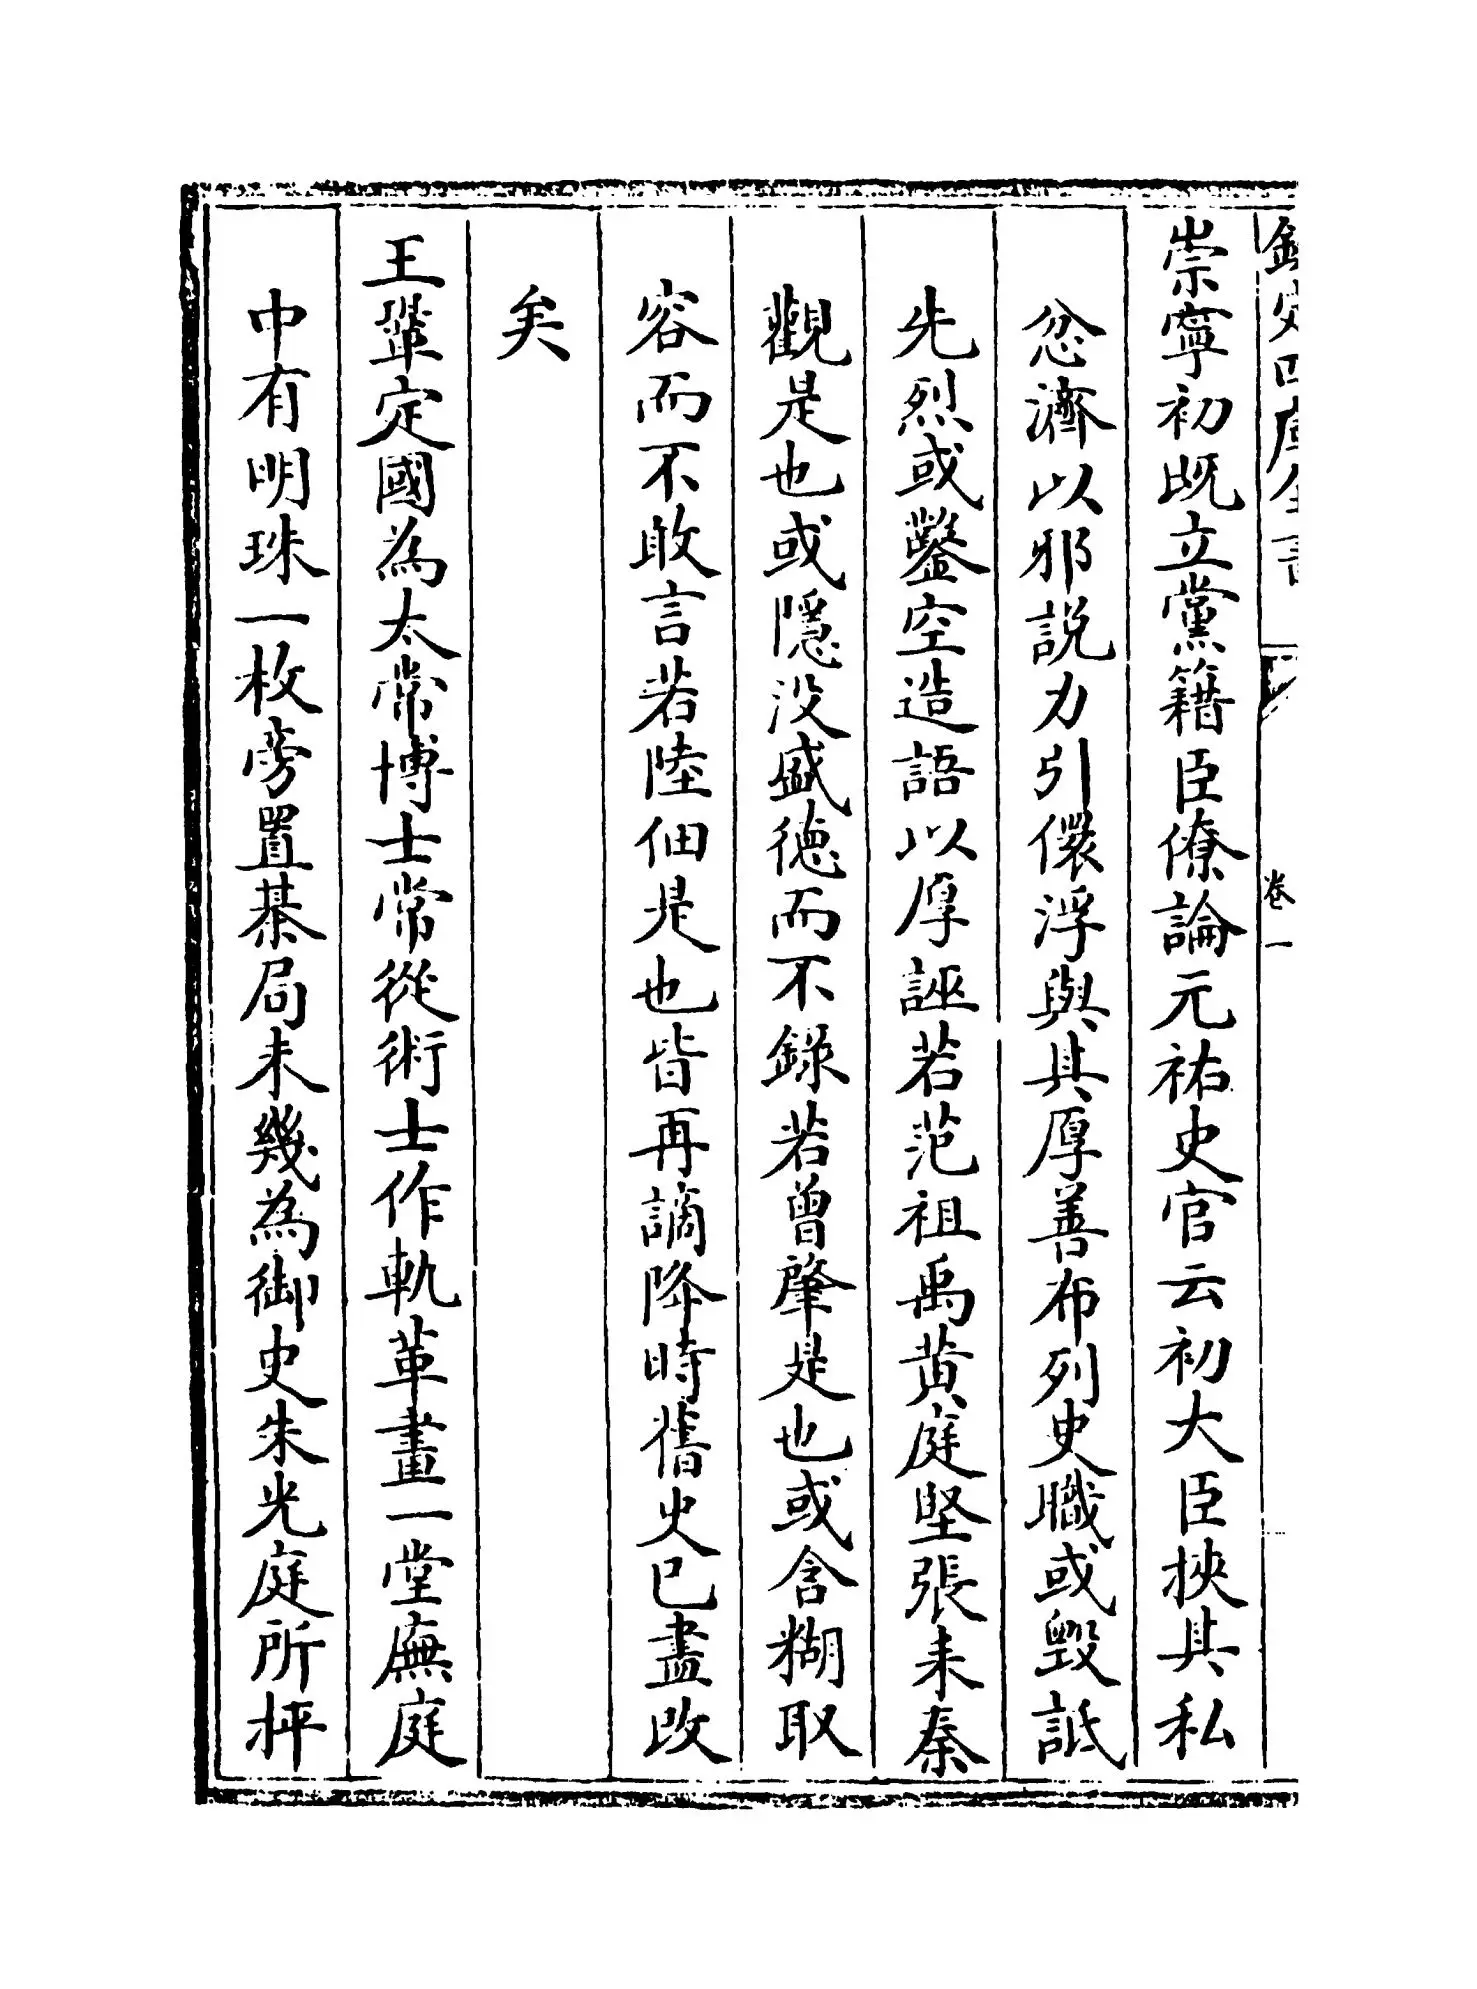 欽定四庫全書
卷一
崇寧初既立黨籍臣僚論元祐史官云初大臣挾其私
忿濟以邪説力引儇浮與其厚善布列史職或毀詆
先烈或鑿空造語以厚誣若范祖禹黄庭堅張耒秦
觀是也或隱没盛德而不錄若曾肇是也或含糊取
容而不敢言若陸佃是也皆再謫降時舊史已盡改
矣
王鞏定國為太常博士常從術士作軌革畫一堂廡庭
中有明珠一枚旁置棊局未幾為御史朱光庭所抨